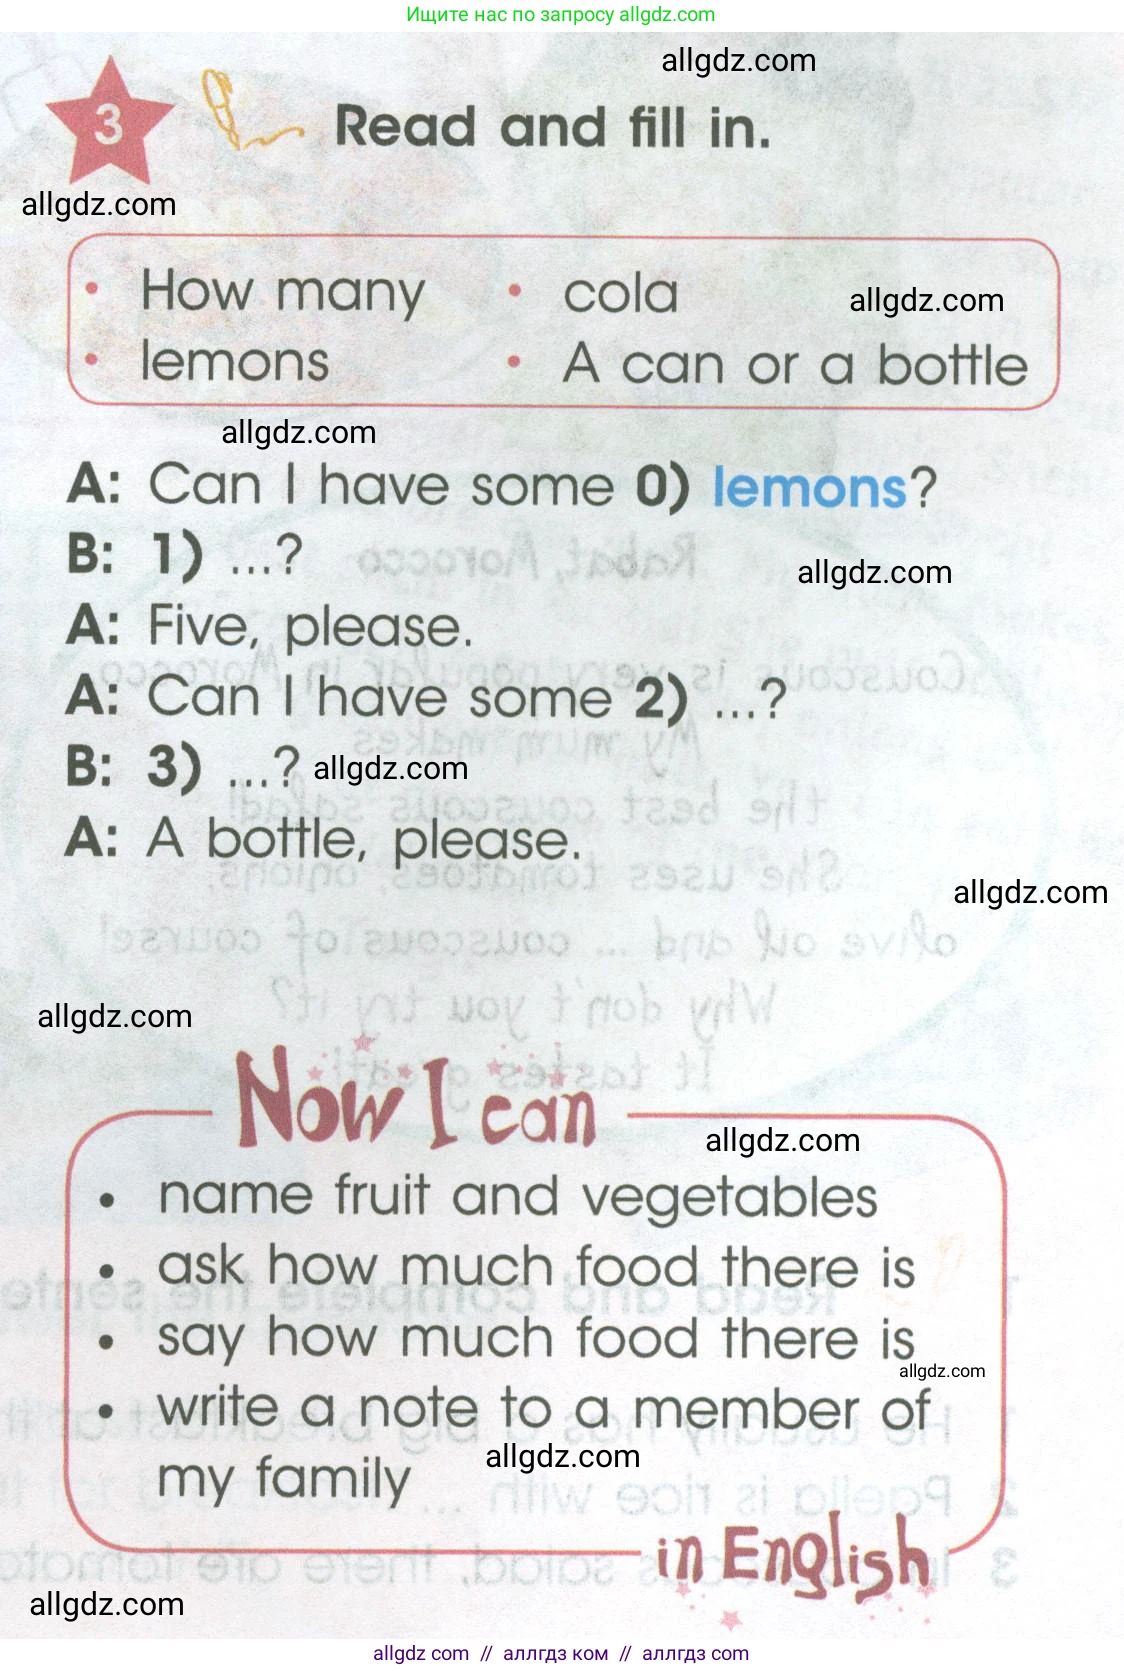 Ищите нас по запросу allgdz.com
allgdz.com
3 Read and fill in.
allgdz.com
• How many • cola
allgdz.com
• lemons • A can or a bottle
allgdz.com
A: Can I have some 0) lemons?
B: 1) ...?
allgdz.com
A: Five, please.
A: Can I have some 2) ...?
B: 3) ...?
allgdz.com
A: A bottle, please.
allgdz.com
allgdz.com
Now I can
allgdz.com
• name fruit and vegetables
• ask how much food there is
• say how much food there is
allgdz.com
• write a note to a member of
my family
allgdz.com
in English
allgdz.com
allgdz com // аллгдз ком // аллгдз.com